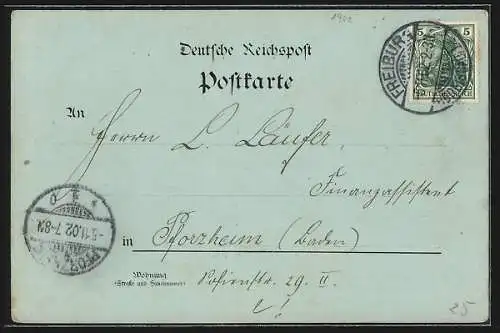 1902
Deutsche Reichspost
Postkarte
5 5
FREIBURG
An
Herrn L. Läufer,
Finanzassistent
in Pforzheim (Baden)
-5.11.02.7-8N.
Wohnung
(Straße und Hausnummer)
Sofienstr. 29. II.
25